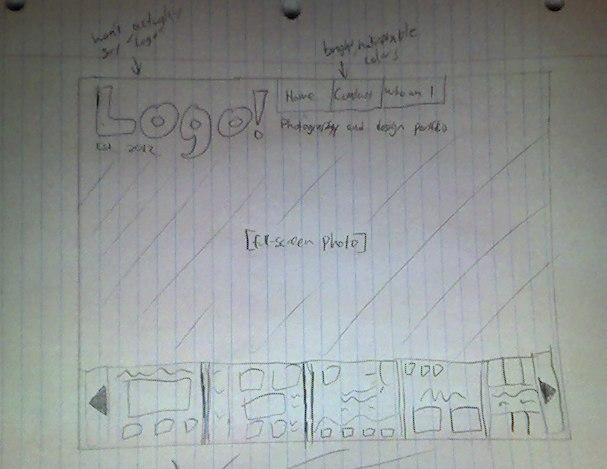 won't actually
say "Logo"
bright hoverable
colors
Logo!
Est. 2012
Home
Contact
Who am I
Photography and design portfolio
[full-screen photo]